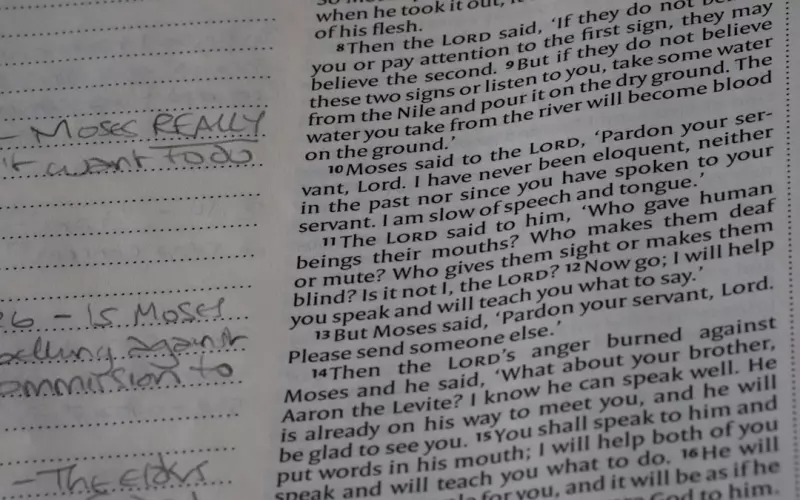 - MOSES REALLY
't want to do
26 - Is Moses
against
commission to
- The Elders
when he took it out, it
of his flesh.
8Then the LORD said, 'If they do not
you or pay attention to the first sign, they may
believe the second. 9But if they do not believe
these two signs or listen to you, take some water
from the Nile and pour it on the dry ground. The
water you take from the river will become blood
on the ground.'
10Moses said to the LORD, 'Pardon your ser-
vant, Lord. I have never been eloquent, neither
in the past nor since you have spoken to your
servant. I am slow of speech and tongue.'
11The LORD said to him, 'Who gave human
beings their mouths? Who makes them deaf
or mute? Who gives them sight or makes them
blind? Is it not I, the LORD? 12Now go; I will help
you speak and will teach you what to say.'
13But Moses said, 'Pardon your servant, Lord.
Please send someone else.'
14Then the LORD's anger burned against
Moses and he said, 'What about your brother,
Aaron the Levite? I know he can speak well. He
is already on his way to meet you, and he will
be glad to see you. 15You shall speak to him and
put words in his mouth; I will help both of you
speak and will teach you what to do. 16He will
for you, and it will be as if he
God to him.